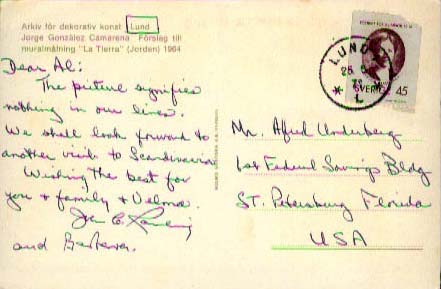 Arkiv för dekorativ konst Lund
Jorge González Camarena Förslag till
muralmålning "La Tierra" (Jorden) 1964
Dear Al:
The picture signifies
nothing in our lives.
We shall look forward to
another visit to Scandinavia
Wishing the best for
you & family & Velma.
and Barbara.
LUND
25
L
SVERIGE
45
Mr. Alfred
1st Federal Savings Bldg
St. Petersburg Florida
USA